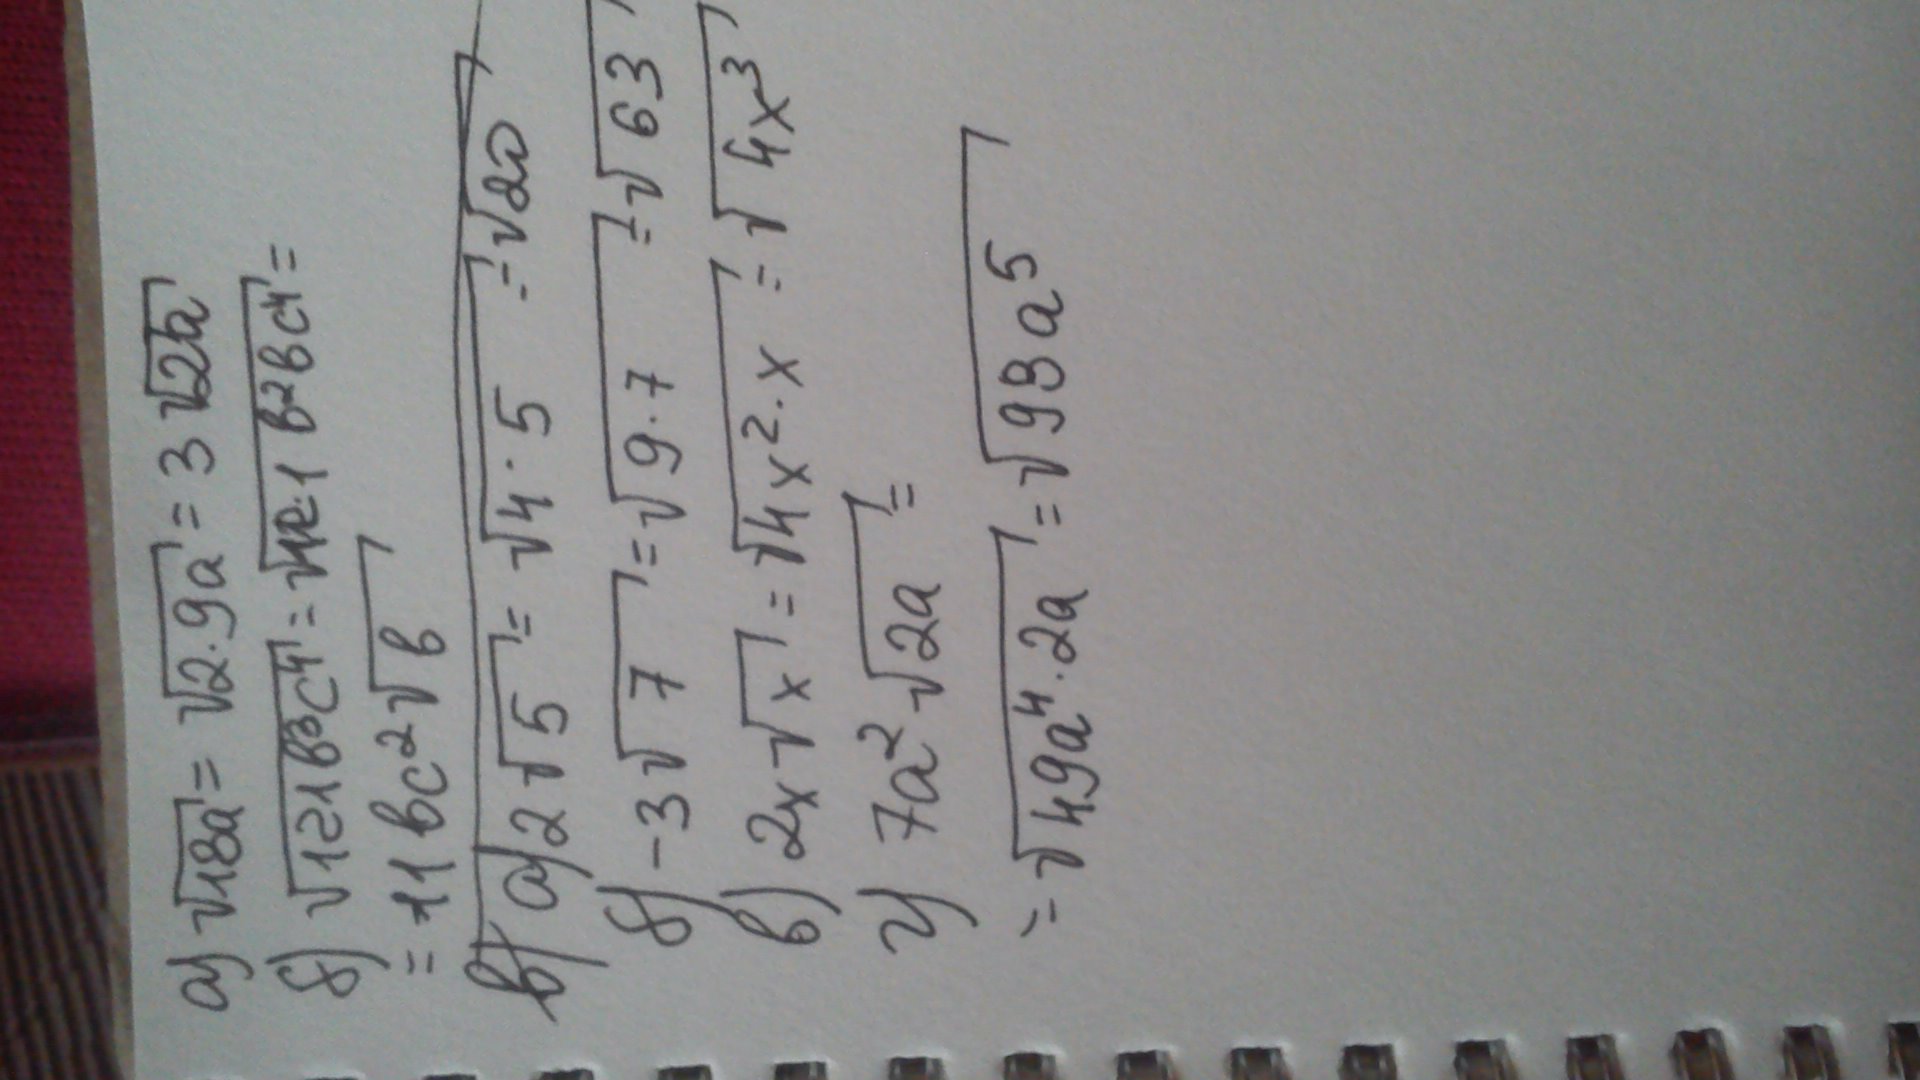 а) √18a = √2·9a = 3√2a
б) √121b³c⁴ = √121b²bc⁴ =
= 11bc²√b
а) 2√5 = √4·5 = √20
б) -3√7 = √9·7 = √63
в) 2x√x = √4x²·x = √4x³
г) 7a²√2a =
= √49a⁴·2a = √98a⁵